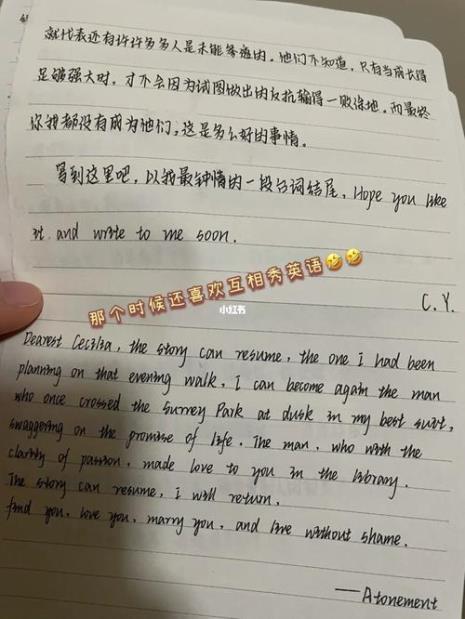 就代表还有许许多多人是未能幸逃的。他们不知道，只有当成长得
足够强大时，才不会因为试图做出的反抗输得一败涂地，而最终
你我都没有成为他们，这是多么好的事情。
写到这里吧，以我最钟情的一段台词结尾，Hope you like
it and write to me soon.
那个时候还喜欢互相秀英语🤣🤣
小红书
C.Y.
Dearest Cecilia, the story can resume, the one I had been
planning on that evening walk, I can become again the man
who once crossed the Surrey Park at dusk in my best suit,
swaggering on the promise of life. The man, who with the
clarity of passion, made love to you in the library.
The story can resume, I will return,
find you, love you, marry you, and live without shame.
——Atonement